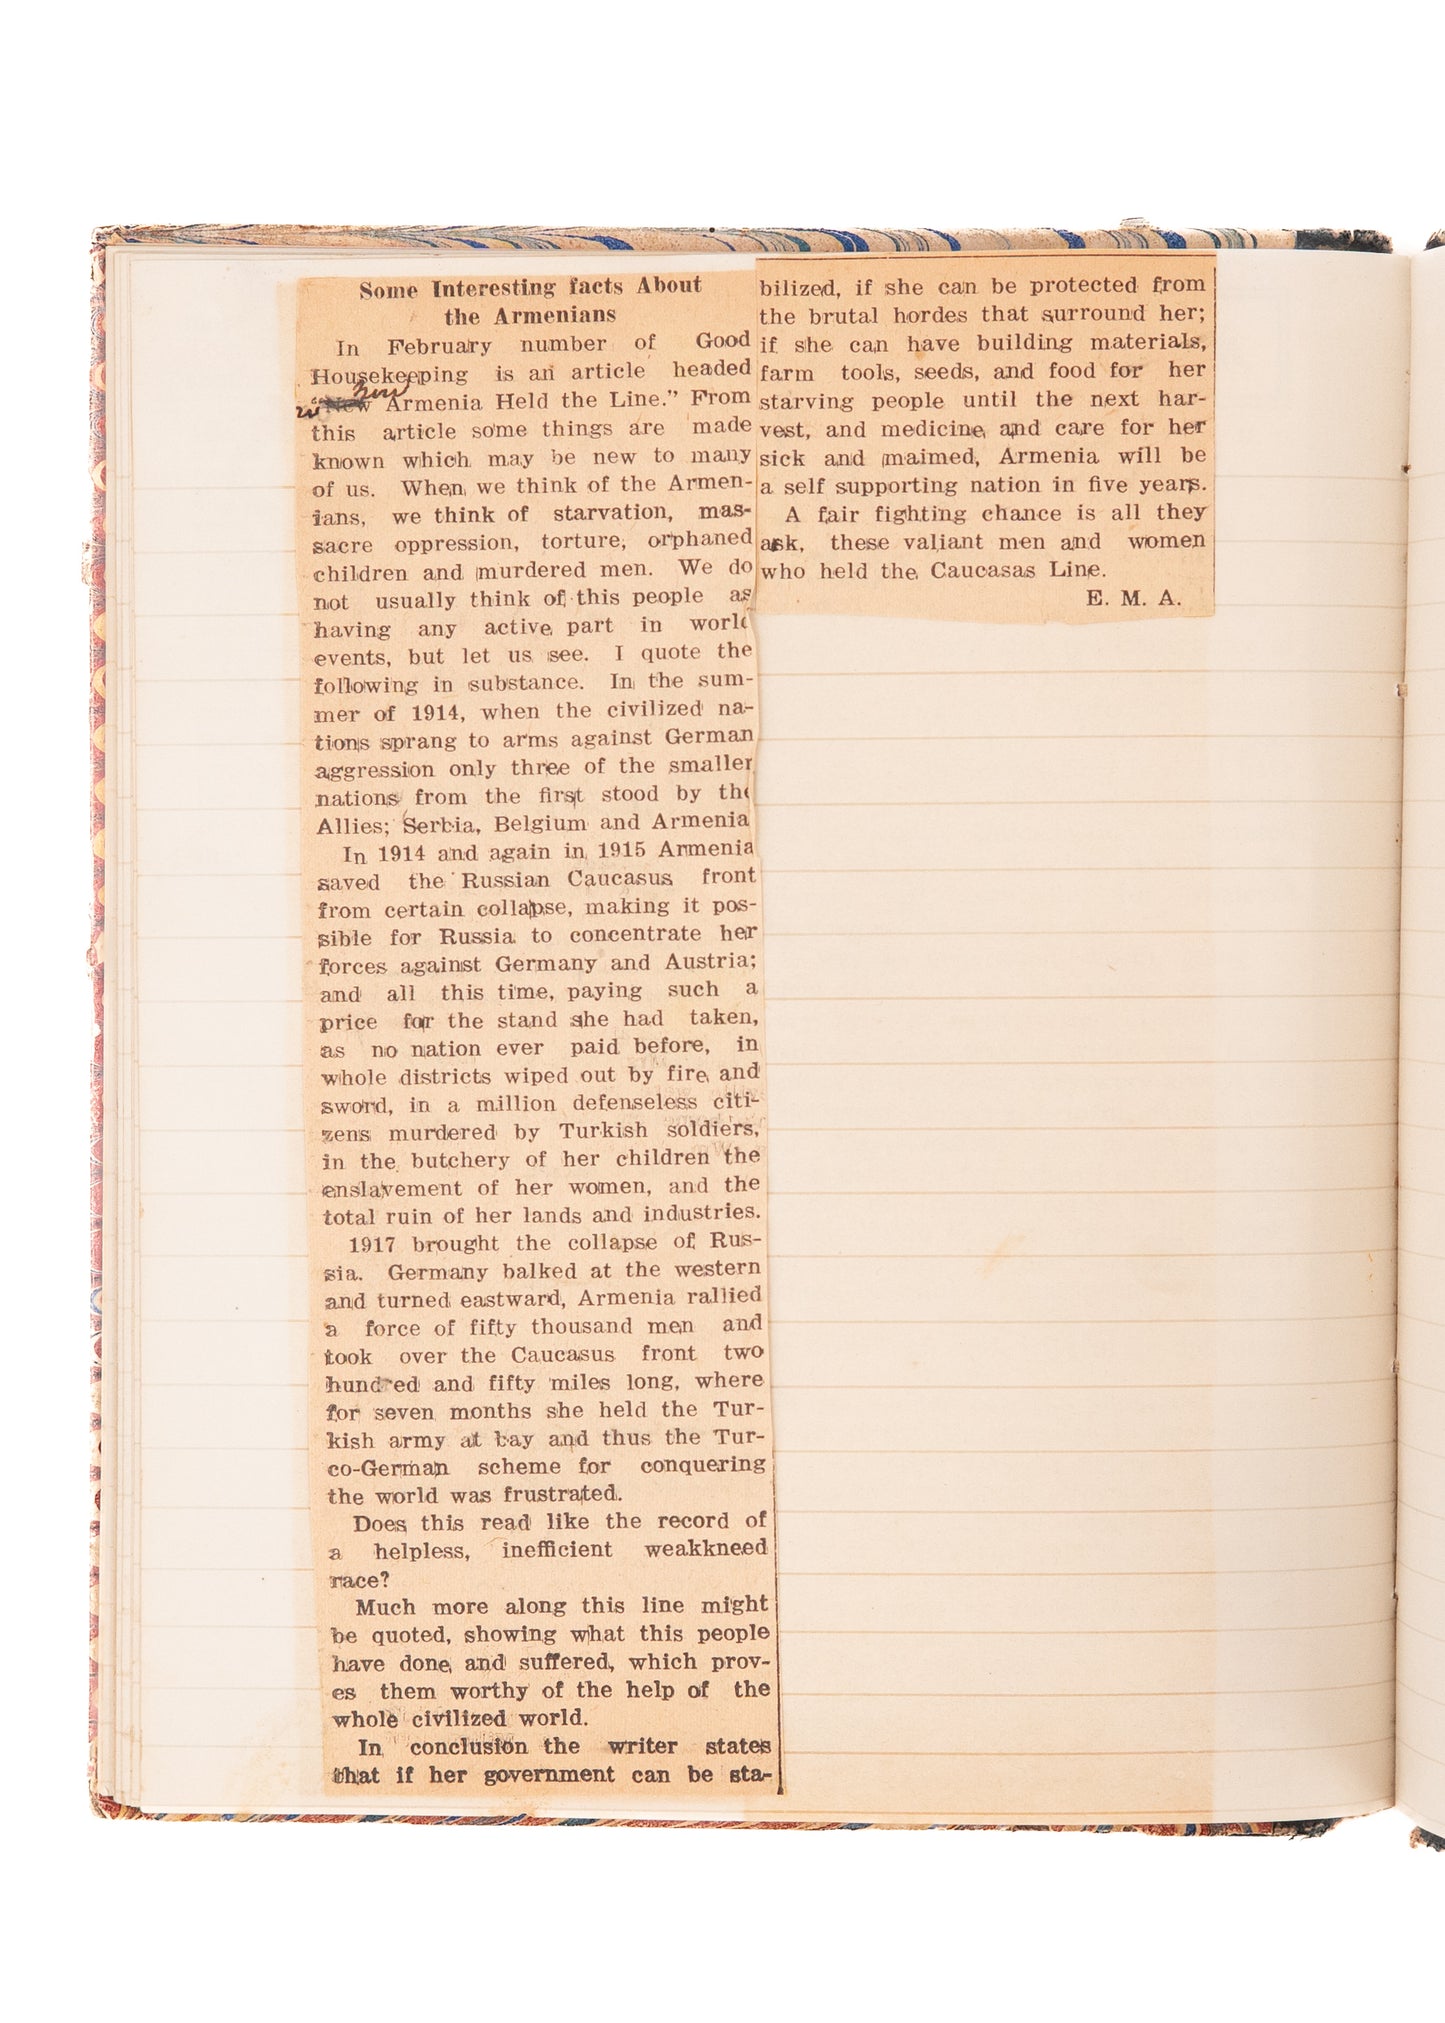 Some Interesting facts About
the Armenians
In February number of Good
Housekeeping is an article headed
How
"New Armenia Held the Line." From
this article some things are made
known which may be new to many
of us. When we think of the Armen-
ians, we think of starvation, mas-
sacre oppression, torture, orphaned
children and murdered men. We do
not usually think of this people as
having any active part in world
events, but let us see. I quote the
following in substance. In the sum-
mer of 1914, when the civilized na-
tions sprang to arms against German
aggression only three of the smaller
nations from the first stood by the
Allies; Serbia, Belgium and Armenia
In 1914 and again in 1915 Armenia
saved the Russian Caucasus front
from certain collapse, making it pos-
sible for Russia to concentrate her
forces against Germany and Austria;
and all this time, paying such a
price for the stand she had taken,
as no nation ever paid before, in
whole districts wiped out by fire and
sword, in a million defenseless citi-
zens murdered by Turkish soldiers,
in the butchery of her children the
enslavement of her women, and the
total ruin of her lands and industries.
1917 brought the collapse of Rus-
sia. Germany balked at the western
and turned eastward, Armenia rallied
a force of fifty thousand men and
took over the Caucasus front two
hundred and fifty miles long, where
for seven months she held the Tur-
kish army at bay and thus the Tur-
co-German scheme for conquering
the world was frustrated.
Does this read like the record of
a helpless, inefficient weakkneed
race?
Much more along this line might
be quoted, showing what this people
have done and suffered, which prov-
es them worthy of the help of the
whole civilized world.
In conclusion the writer states
that if her government can be sta-
bilized, if she can be protected from
the brutal hordes that surround her;
if she can have building materials,
farm tools, seeds, and food for her
starving people until the next har-
vest, and medicine and care for her
sick and maimed, Armenia will be
a self supporting nation in five years.
A fair fighting chance is all they
ask, these valiant men and women
who held the Caucasas Line.
E. M. A.